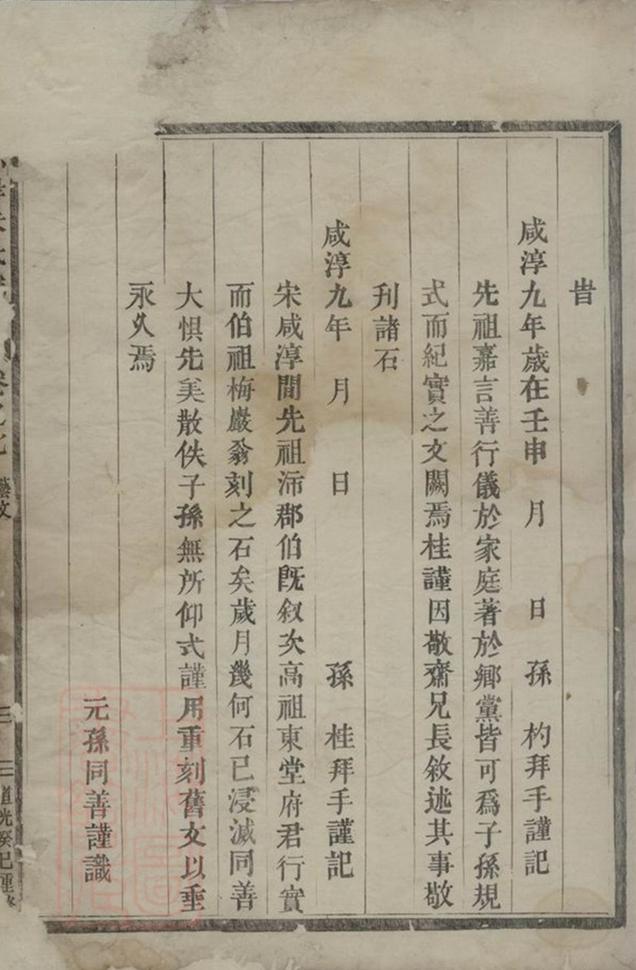 昔
咸淳九年歲在壬申　月　日　孫　杓拜手謹記
先祖嘉言善行儀於家庭著於鄉黨皆可為子孫規
式而紀實之文闕焉桂謹因敬齋兄長敘述其事敬
刋諸石
咸淳九年　月　日　　　孫　桂拜手謹記
宋咸淳間先祖沛郡伯旣叙次高祖東堂府君行實
而伯祖梅巖翁刻之石矣歲月幾何石已浸滅同善
大惧先美散佚子孫無所仰式謹用重刻舊文以垂
永久焉
元孫同善謹識
藝文
三
道光癸巳重修